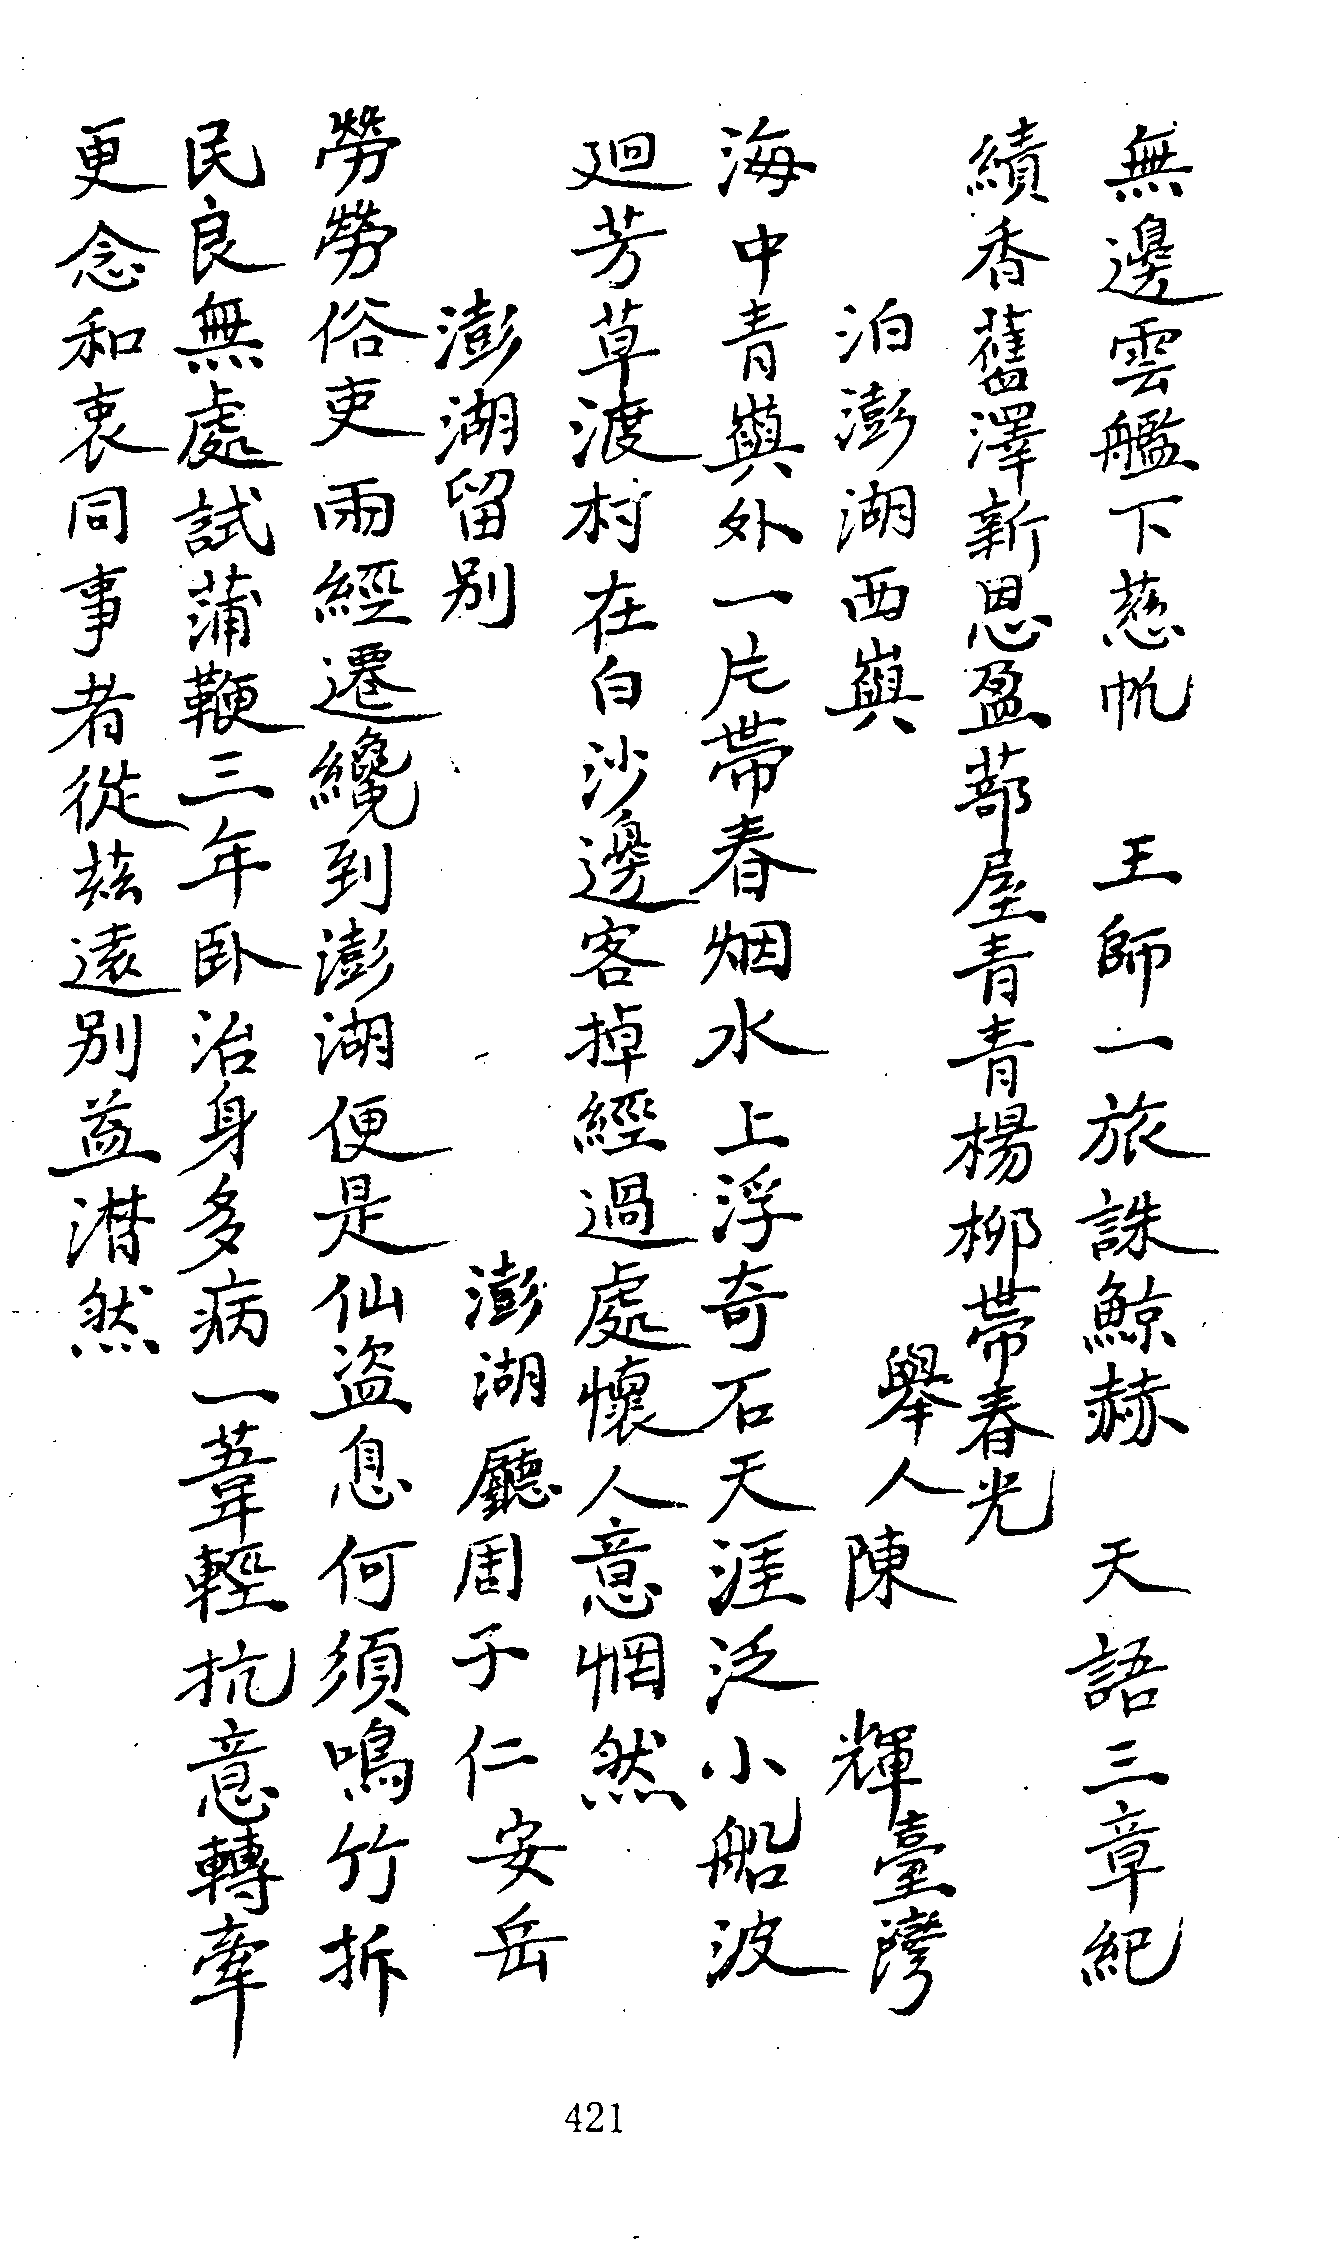 無邊雲艦下慈帆　王師一旅誅鯨赫　天語三章紀
績香舊澤新恩盈蔀屋青青楊柳帶春光
泊澎湖西嶼　舉人陳　輝臺灣
海中青嶼外一片帶春烟水上浮奇石天涯泛小船波
廻芳草渡村在白沙邊客掉經過處懷人意惘然
澎湖留别　澎湖廳周于仁安岳
勞勞俗吏雨經遷纔到澎湖便是仙盜息何須鳴竹拆
民良無處試蒲鞭三年卧治身多病一葦輕抗意轉牽
更念和衷同事者從兹遠别益潸然
421